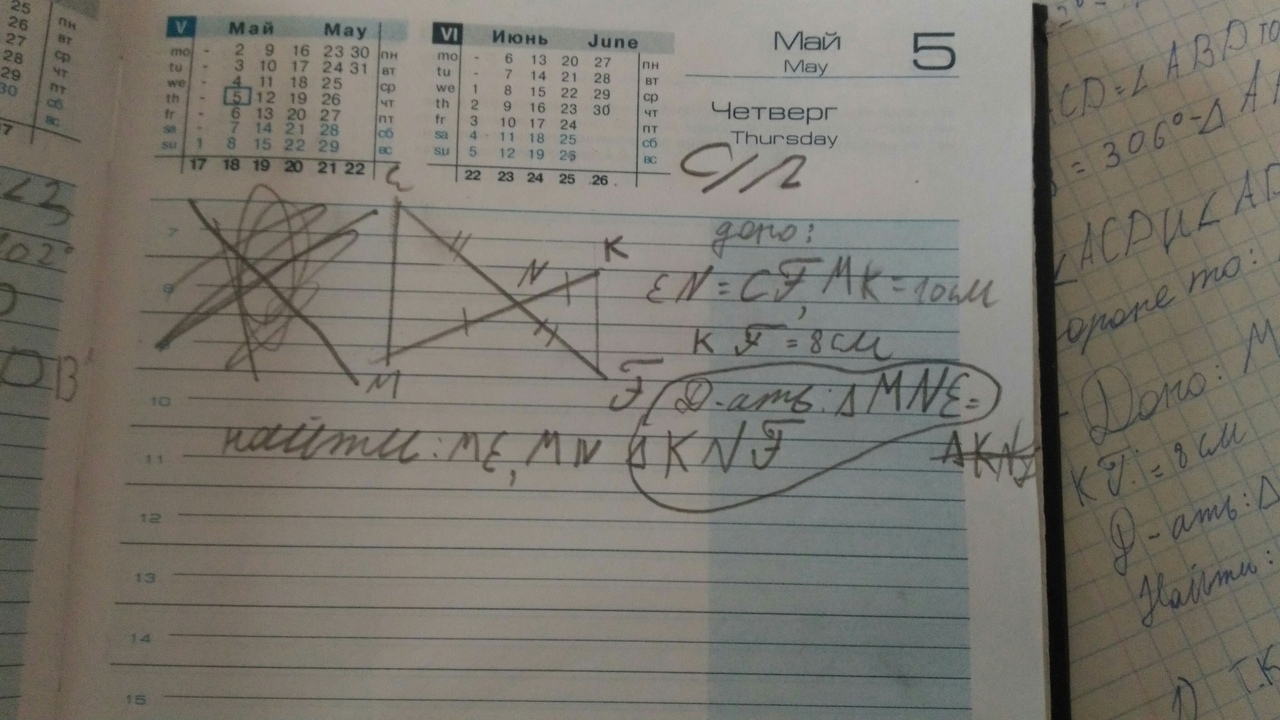 25
26 пн
27 вт
28 ср
29 чт
30 пт
сб
вс
V Май May
mo - 2 9 16 23 30 пн
tu - 3 10 17 24 31 вт
we - 4 11 18 25 ср
th - 5 12 19 26 чт
fr - 6 13 20 27 пт
sa - 7 14 21 28 сб
su 1 8 15 22 29 вс
17 18 19 20 21 22
VI Июнь June
mo - 6 13 20 27 пн
tu - 7 14 21 28 вт
we 1 8 15 22 29 ср
th 2 9 16 23 30 чт
fr 3 10 17 24 пт
sa 4 11 18 25 сб
su 5 12 19 26 вс
22 23 24 25 26
Май 5
May
Четверг
Thursday
С/Л
дано:
EN = CF, MK = 10 см
KF = 8 см
Д-ать: Δ MNE =
Δ KNF
найти: ME, MN
E
N
K
M
F
7
8
10
11
12
13
14
15
CD = ∠ABD то
= 306° - Δ
∠ACD и ∠AD
ороне то:
Дано: M
KF = 8 см
Д-ать: Δ
Найти: